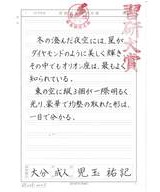 習研大賞
冬の澄んだ夜空には、星が
ダイヤモンドのように美しく輝き、
その中でもオリオン座は、最もよく
知られている。
東の空に綴る銀が一際明るく
光り、豪華で均整の取れた形は、
一目で分かる。
大分 成人 児玉 祐記